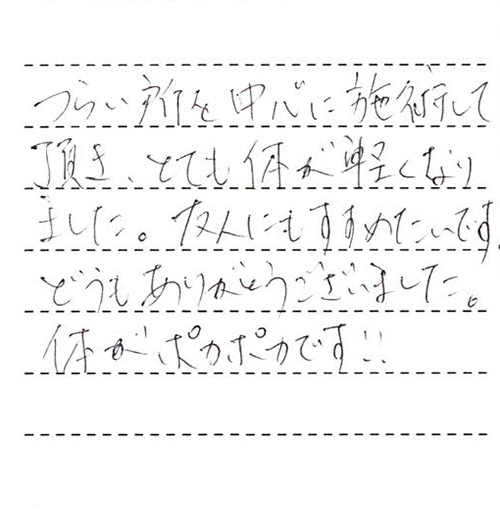 つらい所を中心に施術して
頂き、とても体が軽くなり
ました。友人にもすすめたいです。
どうもありがとうございました。
体がポカポカです!!